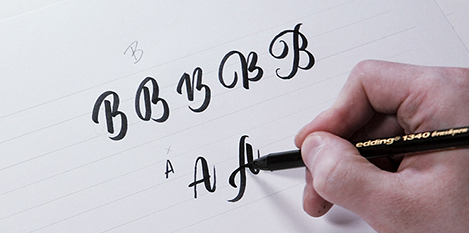 B
B B B B B
A A A
edding 1340 brushpen